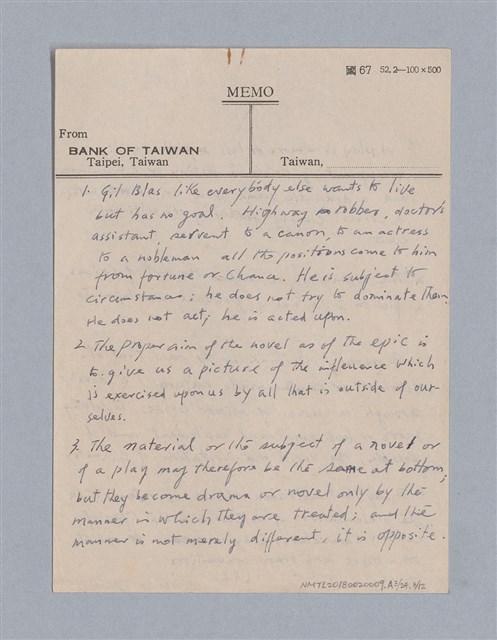 67 52.2—100×500
MEMO
From
BANK OF TAIWAN
Taipei, Taiwan
Taiwan,
1. Gil Blas like everybody else wants to live
but has no goal. Highway robber, doctor's
assistant, servent to a canon, to an actress
to a nobleman all the positions come to him
from fortune or Chance. He is subject to
circumstances; he does not try to dominate them.
He does not act; he is acted upon.
2. The proper aim of the novel as of the epic is
to give us a picture of the influence which
is exercised upon us by all that is outside of our-
selves.
3. The material or the subject of a novel or
of a play may therefore be the same at bottom;
but they become drama or novel only by the
manner in which they are treated; and the
manner is not merely different, it is opposite.
NMTL20180020009.A3/24.9/12